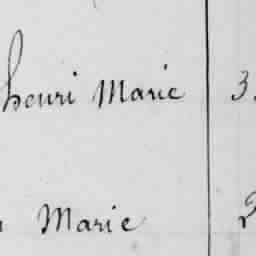 henri Marie 3
Marie 2